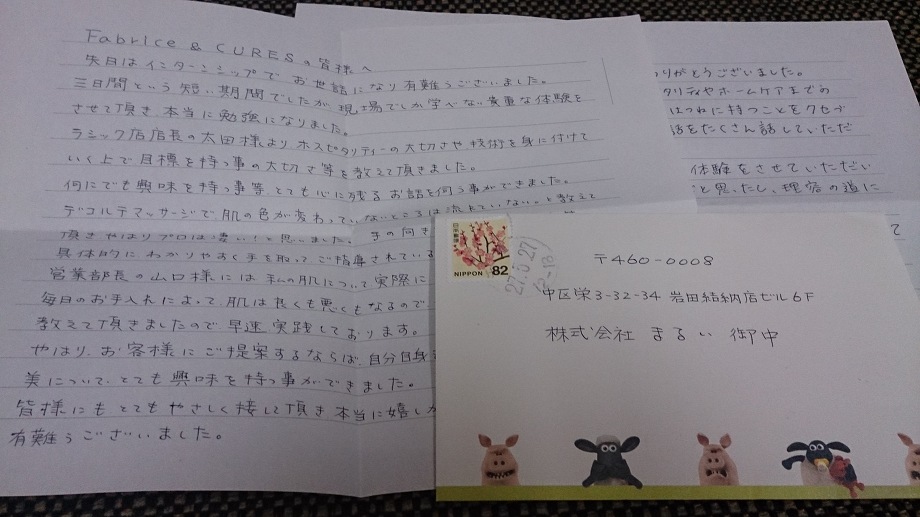 Fabrice & CURESの皆様へ
先日はインターンシップでお世話になり有難うございました。
三日間という短い期間でしたが、現場でしか学べない貴重な体験を
させて頂き本当に勉強になりました。
ラシック店店長の太田様より、ホスピタリティーの大切さや技術を身に付けて
いく上で目標を持つ事の大切さ等を教えて頂きました。
何にでも興味を持つ事等、とても心に残るお話を伺う事ができました。
デコルテマッサージで、肌の色が変わっていないところは流れていないと教えて
頂きやはりプロは凄い!と思いました。手の向き
具体的にわかりやすく手を取ってご指導されている
営業部長の山口様には私の肌について実際に
毎日のお手入れによって、肌は良くも悪くもなるので
教えて頂きましたので早速実践しております。
やはり、お客様にご提案するならば、自分自身
美について、とても興味を持つ事ができました。
皆様にもとてもやさしく接して頂き本当に嬉しか
有難うございました。
りがとうございました。
タリティやホームケアまでの
はつねに持つことをクセづ
話をたくさん話していただ
体験をさせていただい
と思ったし、理容の道に
て
日本郵便
NIPPON 82
27.3.27
12-18
〒460-0008
中区栄3-32-34 岩田結納店ビル6F
株式会社 まるい 御中